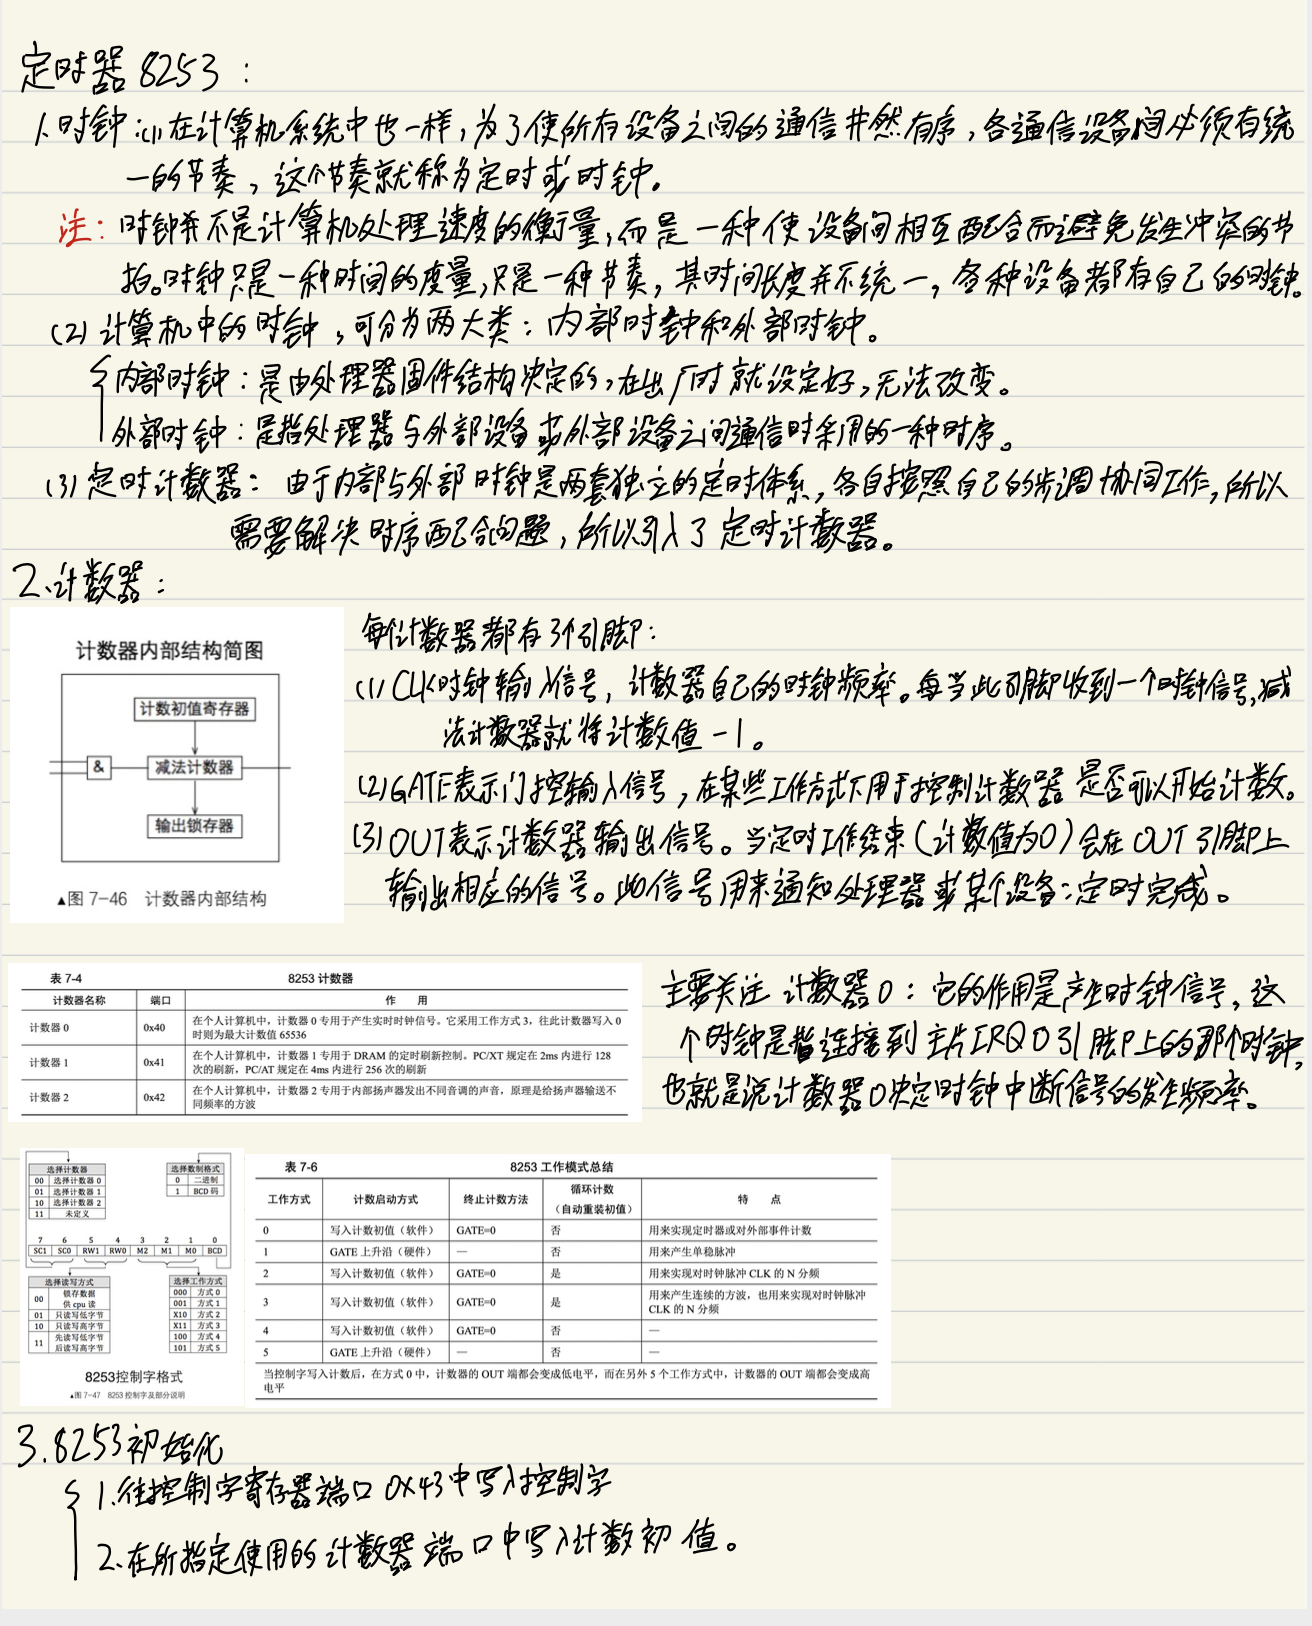 定时器 8253：
1.时钟：(1)在计算机系统中也一样，为了使所有设备之间的通信井然有序，各通信设备间必须有统
一的节奏，这个节奏就称为定时或时钟。
注：时钟并不是计算机处理速度的衡量，而是一种使设备间相互配合而避免发生冲突的节
拍。时钟只是一种时间的度量，只是一种节奏，其时间长度并不统一，各种设备都有自己的时钟。
(2) 计算机中的时钟，可分为两大类：内部时钟和外部时钟。
内部时钟：是由处理器固件结构决定的，在出厂时就设定好，无法改变。
外部时钟：是指处理器与外部设备或外部设备之间通信时采用的一种时序。
(3) 定时计数器：由于内部与外部时钟是两套独立的定时体系，各自按照自己的步调协同工作，所以
需要解决时序配合问题，所以引入了定时计数器。
2.计数器：
计数器内部结构简图
计数初值寄存器
&
减法计数器
输出锁存器
▲图 7-46 计数器内部结构
每个计数器都有3个引脚：
(1) CLK时钟输入信号，计数器自己的时钟频率。每当此引脚收到一个时钟信号，减
法计数器就将计数值 -1。
(2) GATE表示门控输入信号，在某些工作方式下用于控制计数器是否可以开始计数。
(3) OUT表示计数器输出信号。当定时工作结束（计数值为0）会在OUT引脚上
输出相应的信号。此信号用来通知处理器或某个设备：定时完成。
表 7-4 8253 计数器
计数器名称 端口 作 用
计数器 0 0x40 在个人计算机中，计数器 0 专用于产生实时时钟信号。它采用工作方式 3，往此计数器写入 0
时则为最大计数值 65536
计数器 1 0x41 在个人计算机中，计数器 1 专用于 DRAM 的定时刷新控制。PC/XT 规定在 2ms 内进行 128
次的刷新，PC/AT 规定在 4ms 内进行 256 次的刷新
计数器 2 0x42 在个人计算机中，计数器 2 专用于内部扬声器发出不同音调的声音，原理是给扬声器输送不
同频率的方波
主要关注 计数器0：它的作用是产生时钟信号，这
个时钟是指连接到主片IRQ0引脚上的那个时钟，
也就是说计数器0决定时钟中断信号的发生频率。
选择计数器
00 选择计数器 0
01 选择计数器 1
10 选择计数器 2
11 未定义
选择数制格式
0 二进制
1 BCD 码
7 6 5 4 3 2 1 0
SC1 SC0 RW1 RW0 M2 M1 M0 BCD
选择读写方式
00 锁存数据
供 cpu 读
01 只读写低字节
10 只读写高字节
11 先读写低字节
后读写高字节
选择工作方式
000 方式 0
001 方式 1
X10 方式 2
X11 方式 3
100 方式 4
101 方式 5
8253控制字格式
▲图 7-47 8253 控制字及部分说明
表 7-6 8253 工作模式总结
工作方式 计数启动方式 终止计数方法 循环计数
（自动重装初值） 特 点
0 写入计数初值（软件） GATE=0 否 用来实现定时器或对外部事件计数
1 GATE 上升沿（硬件） — 否 用来产生单稳脉冲
2 写入计数初值（软件） GATE=0 是 用来实现对时钟脉冲 CLK 的 N 分频
3 写入计数初值（软件） GATE=0 是 用来产生连续的方波，也用来实现对时钟脉冲
CLK 的 N 分频
4 写入计数初值（软件） GATE=0 否 —
5 GATE 上升沿（硬件） — 否 —
当控制字写入计数后，在方式 0 中，计数器的 OUT 端都会变成低电平，而在另外 5 个工作方式中，计数器的 OUT 端都会变成高
电平
3.8253初始化
1.往控制字寄存器端口 0x43中写入控制字
2.在所指定使用的计数器端口中写入计数初值。